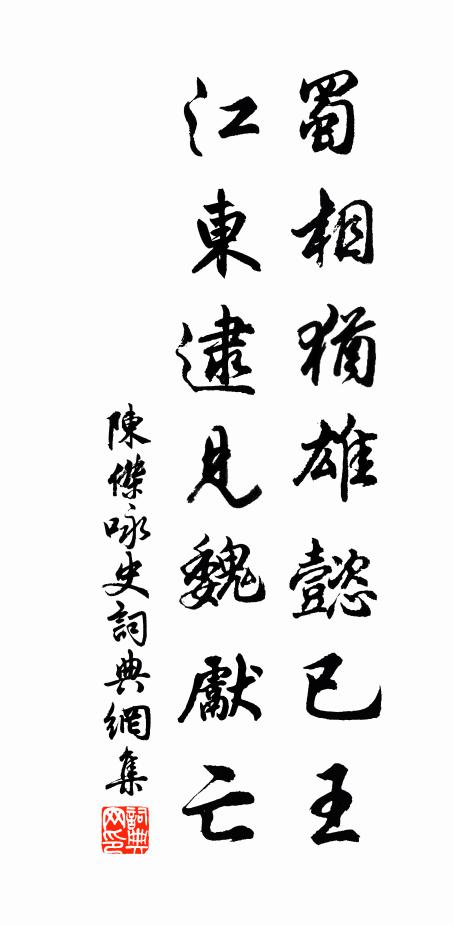 蜀相猶雄懿已王
江東逮見魏獻亡
陳傑咏史詞典網集
詞典網印